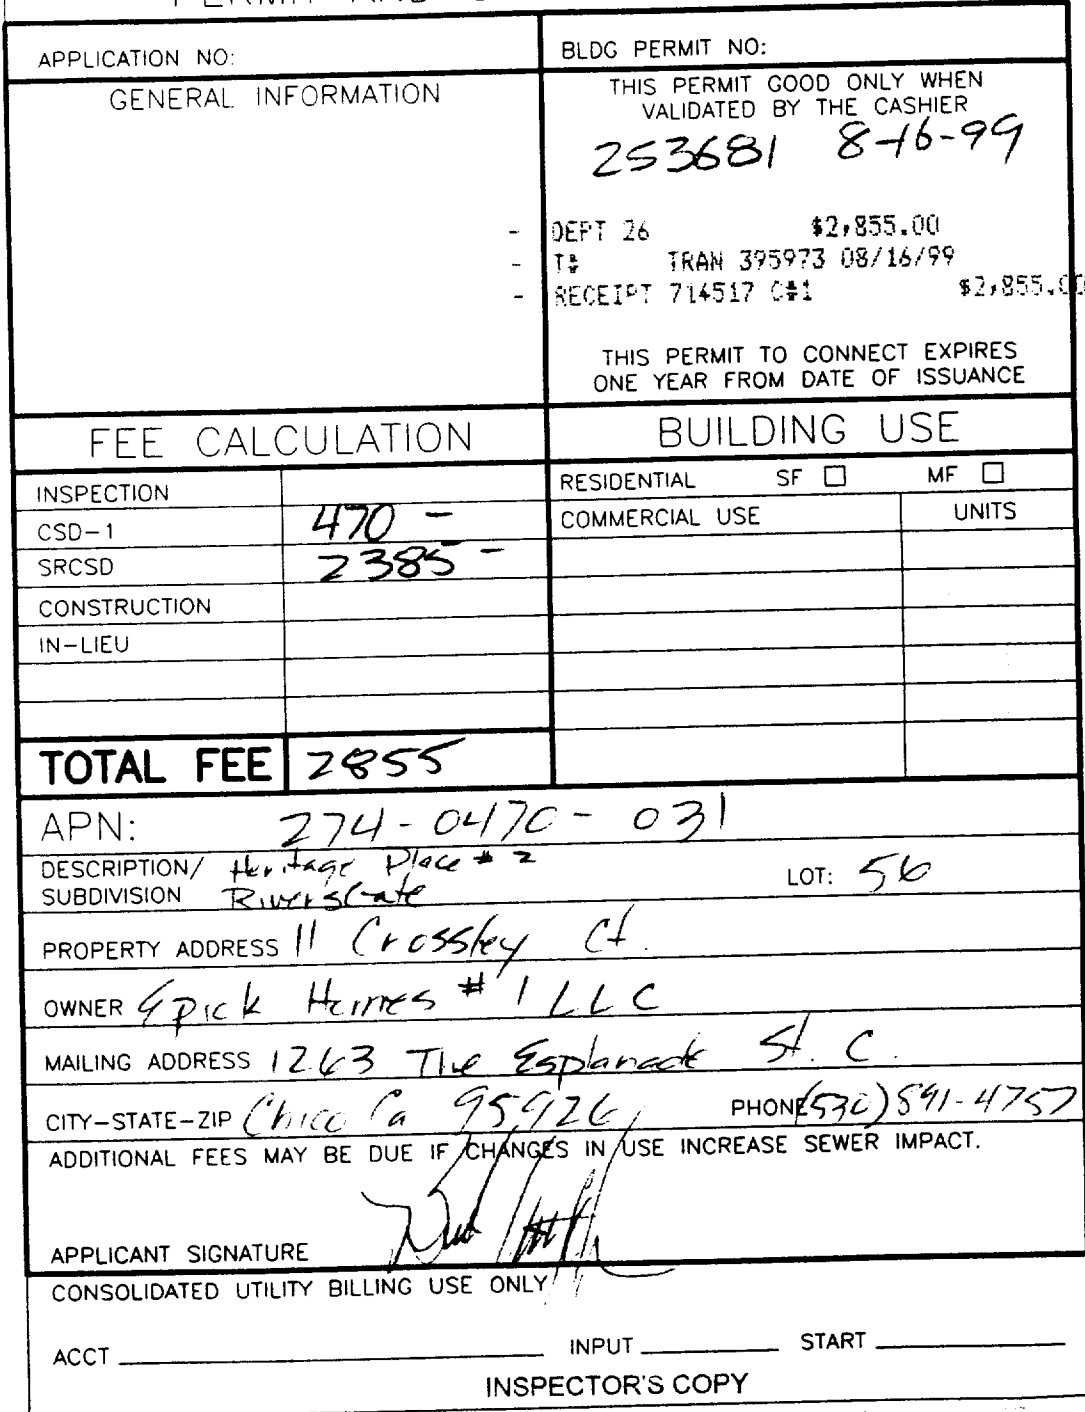 PERMIT AND
APPLICATION NO:
BLDG PERMIT NO:
GENERAL INFORMATION
THIS PERMIT GOOD ONLY WHEN
VALIDATED BY THE CASHIER
253681 8-16-99
- DEPT 26 $2,855.00
- T# TRAN 395973 08/16/99
- RECEIPT 714517 C#1 $2,855.00
THIS PERMIT TO CONNECT EXPIRES
ONE YEAR FROM DATE OF ISSUANCE
FEE CALCULATION
BUILDING USE
INSPECTION
RESIDENTIAL SF ☐ MF ☐
CSD-1 470 -
COMMERCIAL USE UNITS
SRCSD 2385 -
CONSTRUCTION
IN-LIEU
TOTAL FEE 2855
APN: 274-0470-031
DESCRIPTION/ Heritage Place # 2
SUBDIVISION
LOT: 56
PROPERTY ADDRESS 11 Crossley Ct.
OWNER Epick Homes # 1 LLC
MAILING ADDRESS 1263 The Esplanade St. C.
CITY-STATE-ZIP Chico Ca 95926 PHONE (530) 891-4757
ADDITIONAL FEES MAY BE DUE IF CHANGES IN USE INCREASE SEWER IMPACT.
APPLICANT SIGNATURE
CONSOLIDATED UTILITY BILLING USE ONLY
ACCT INPUT START
INSPECTOR'S COPY